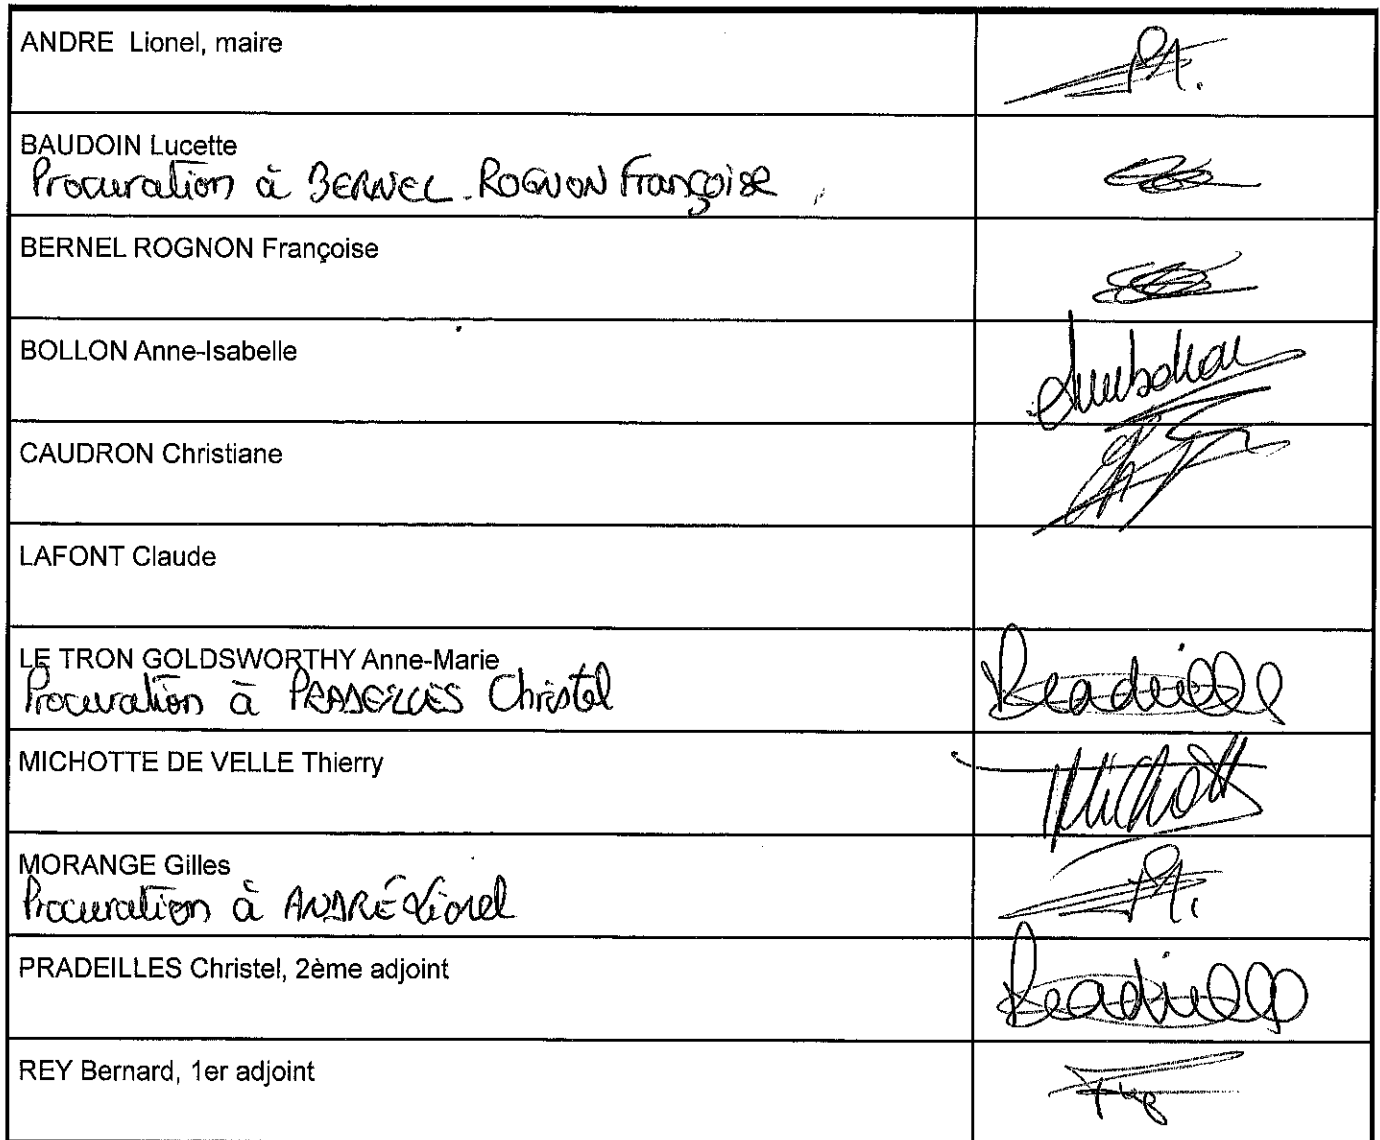 ANDRE Lionel, maire
BAUDOIN Lucette
Procuration à BERNEL-ROGNON Françoise
BERNEL ROGNON Françoise
BOLLON Anne-Isabelle
CAUDRON Christiane
LAFONT Claude
LE TRON GOLDSWORTHY Anne-Marie
Procuration à PRADEILLES Christel
MICHOTTE DE VELLE Thierry
MORANGE Gilles
Procuration à ANDRÉ Lionel
PRADEILLES Christel, 2ème adjoint
REY Bernard, 1er adjoint